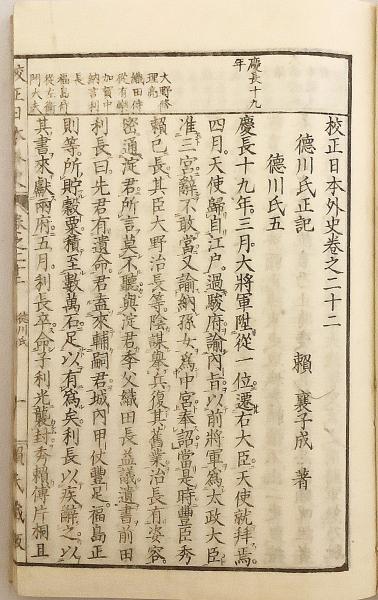 校正日本外史卷之二十二
德川氏正記
賴襄子成著
德川氏五
慶長十九年
慶長十九年三月大將軍陞從一位遷右大臣天使就拜焉
四月天使歸自江戶過駿府諭內旨以前將軍爲太政大臣
准三宮辭不敢當又諭納孫女爲中宮奉詔當是時豐臣秀
賴已長其臣大野治長等陰謀擧兵復其舊業治長有姿容
密通淀君所言莫不聽與淀君季父織田長益議遺書前田
利長曰先君有遺命君盍來輔嗣君城內甲仗豐足福島正
則等所貯穀粟積至數萬石足以有爲矣利長以疾辭之以
其書來獻兩府五月利長卒命子利光襲封秀賴傅片桐且
大野修
理亮
織田侍
從有樂
加賀中
納言利
長
福島
從左衞
門大夫
校正日本外史
卷之二十二
德川氏
一
賴氏藏版